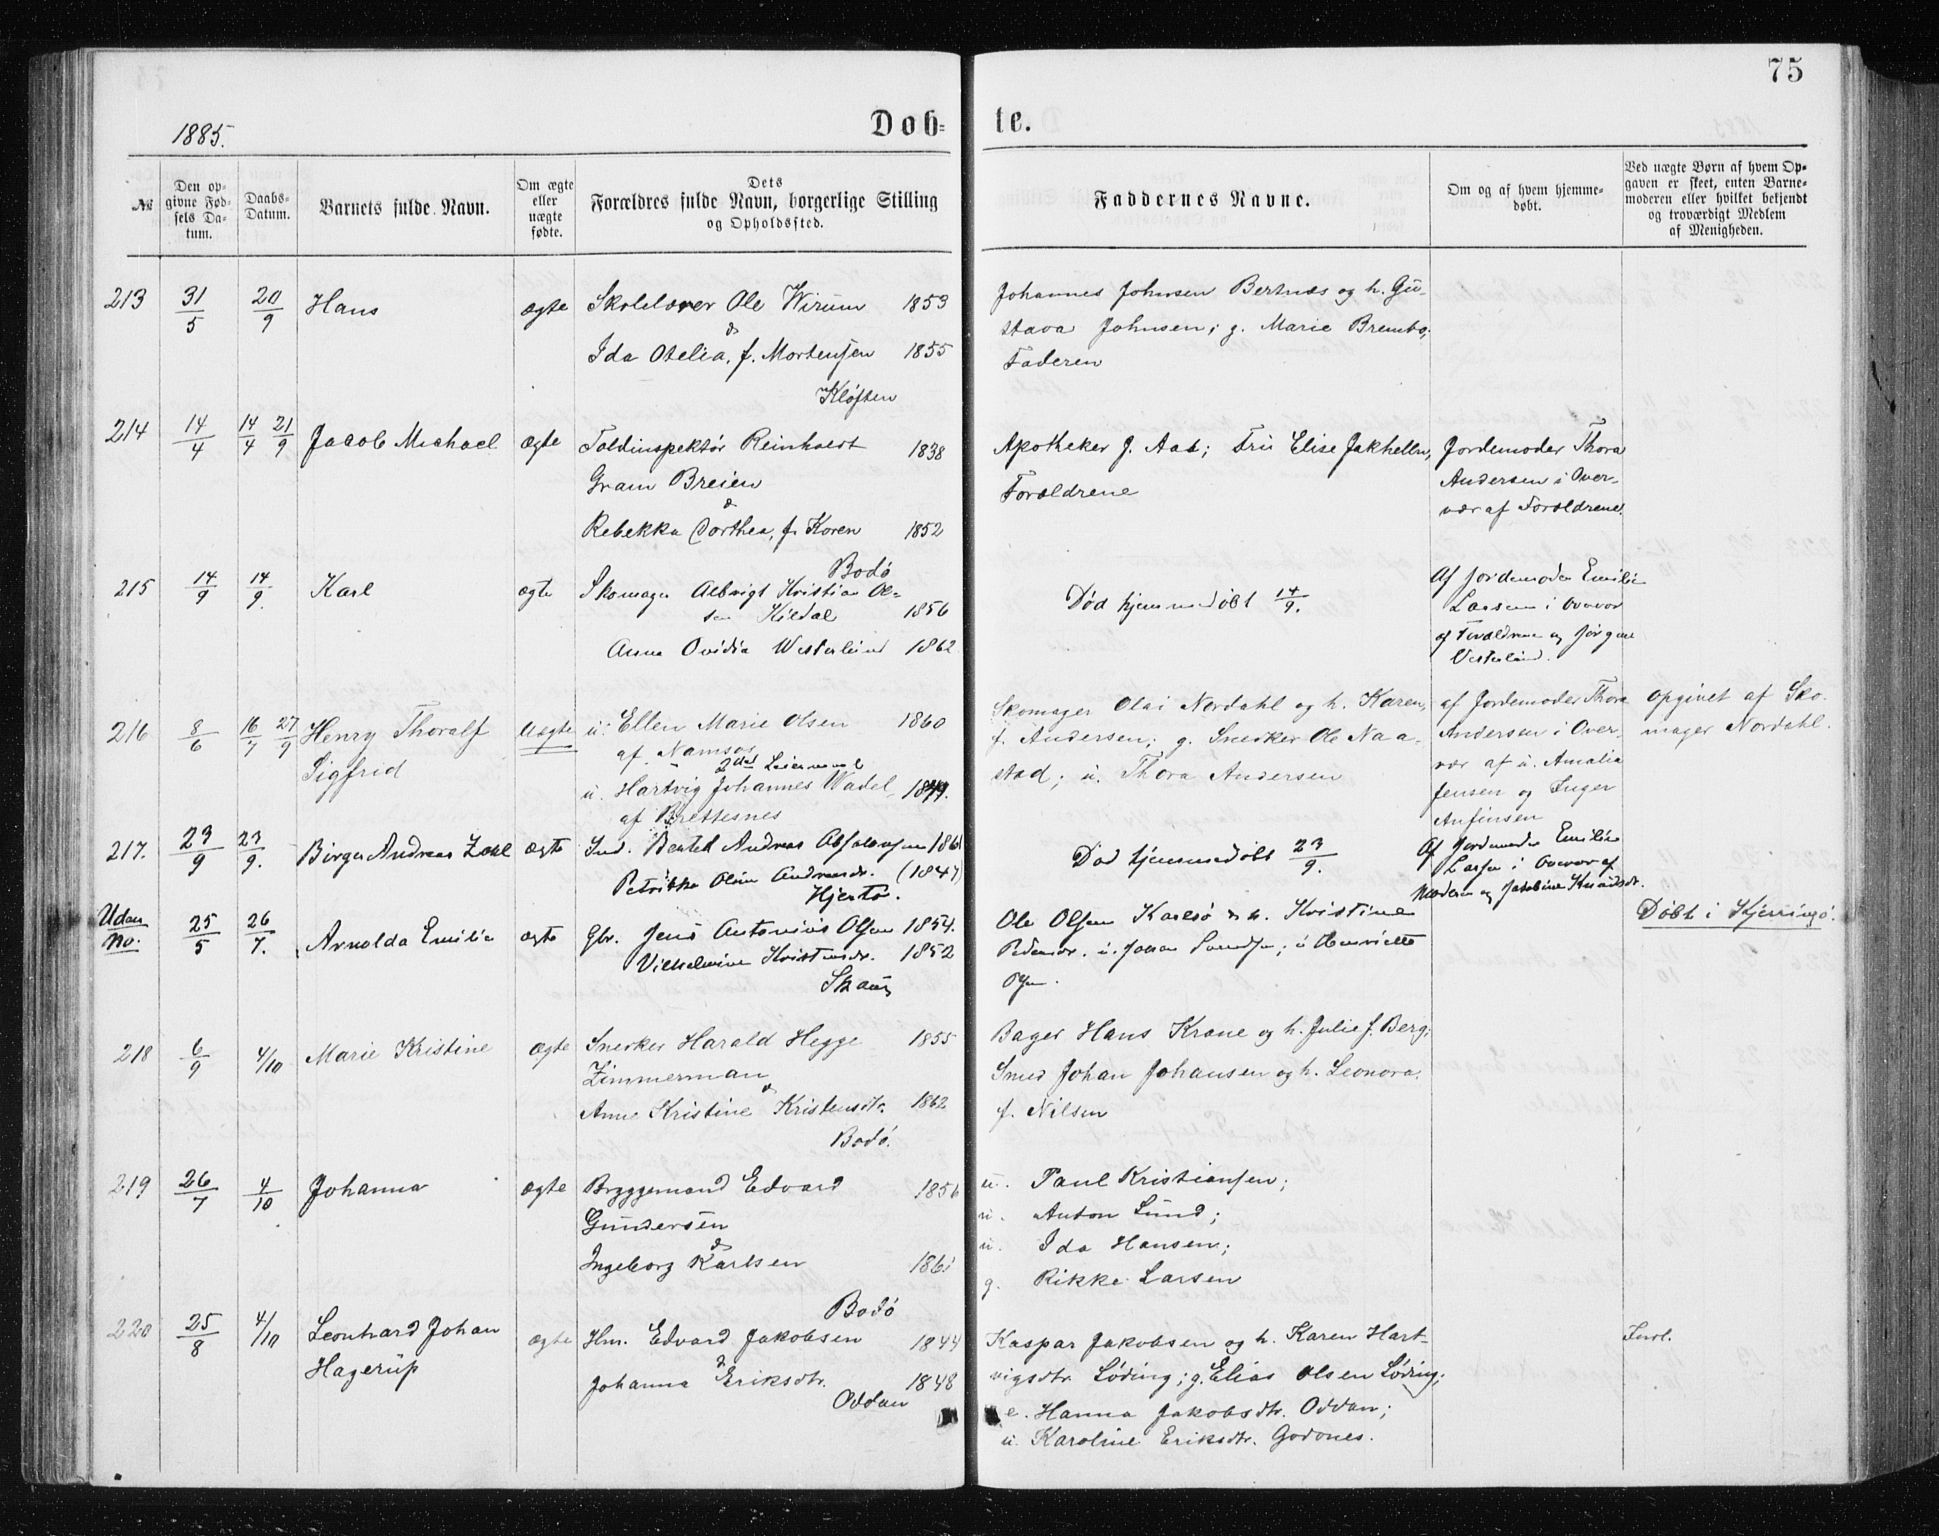 75
1885.
Døb-
te.
№
Den op-
givne Fød-
sels Da-
tum.
Daabs-
Datum.
Barnets fulde Navn.
Om ægte
eller
uægte
fødte.
Dets
Forældres fulde Navn, borgerlige Stilling
og Opholdssted.
Faddernes Navne.
Om og af hvem hjemme-
døbt.
Ved uægte Børn af hvem Op-
gaven er skeet, enten Barne-
moderen eller hvilket bekjendt
og troværdigt Medlem
af Menigheden.
213 31/5 20/9 Hans ægte Skolelærer Ole Wirum 1853
&
Ida Otelia, f. Mortensen 1855
Kløften
Johannes Johnsen Bertnæs og h. Gu-
stava Johnsen; g. Marie Brembo,
Faderen
214 14/4 14/4 21/9 Jacob Michael ægte Toldinspektør Reinholdt 1838
Gram Breien
&
Rebekka Dorthea, f. Koren 1852
Bodø
Apotheker J. Aas; Fru Elise Jakhelln,
Forældrene
Jordemoder Thora
Andersen i Over-
vær af Forældrene.
215 14/9 14/9. Karl ægte Skomager Albrigt Kristian Ol-
sen Kildal 1856
Anna Ovidia Westerlund 1862
Død hjemmedøbt 14/9.
Af Jordemoder Emilie
Larsen i Overvær
af Forældrene og Jørgine
Vesterlund.
216 8/6 16/7 27/9 Henry Thoralf
Sigfrid
Uægte
u. Ellen Marie Olsen 1860
af Namsos
2det Leiermaal
u. Hartvig Johannes Wadel,
af Brettesnes
Skomager Olai Nordahl og h. Karen,
f. Andersen; g. Snedker Ole Naa-
stad; u. Thora Andersen
af Jordemoder Thora
Andersen i Over-
vær af u. Amalia
Jensen og Inger
Anfinsen
opgivet af Sko-
mager Nordahl.
217. 23/9 23/9. Birger Andreas Zahl ægte Ind. Bertel Andreas Absalonsen 1861
Petrikke Oline Andreasdr. (1847)
Hjertø.
Død hjemmedøbt 23/9.
Af Jordemoder Emilie
Larsen i Overvær af
Moderen og Jakobine Knudsdr.
Uden
No. 25/5 26/7. Arnolda Emilie ægte Gbr. Jens Antonius Olsen 1854.
Vilhelmine Kristensdr. 1852
Skaug
Ole Olsen Karlsø & h. Kristine
Pedersdr. u. Johan ; u Henriette
Olsen.
Døbt i Kjerringø.
218 6/9 4/10 Marie Kristine ægte Snedker Harald Hegge 1855
Zimmerman
&
Anne Kristine Kristensdtr. 1862
Bodø.
Bager Hans Krane og h. Julie f. Berg;
Smed Johan Johansen og h. Leonora,
f. Nilsen
219 26/7 4/10 Johanna ægte Bryggemand Edvard 1856
Gundersen
&
Ingeborg Karlsen 1861
Bodø
u. Paul Kristiansen;
u. Anton Lund;
u. Ida Hansen;
g. Rikke Larsen
220 25/8 4/10 Leonhard Johan
Hagerup
ægte Hm. Edvard Jakobsen 1844
&
Johanna Eriksdtr. 1848
Oddan
Kaspar Jakobsen og h. Karen Hart-
vigsdtr. Løding; g. Elias Olsen Løding;
e. Hanna Jakobsdtr. Oddan;
u. Karoline Eriksdtr. Godønes.
Indl.